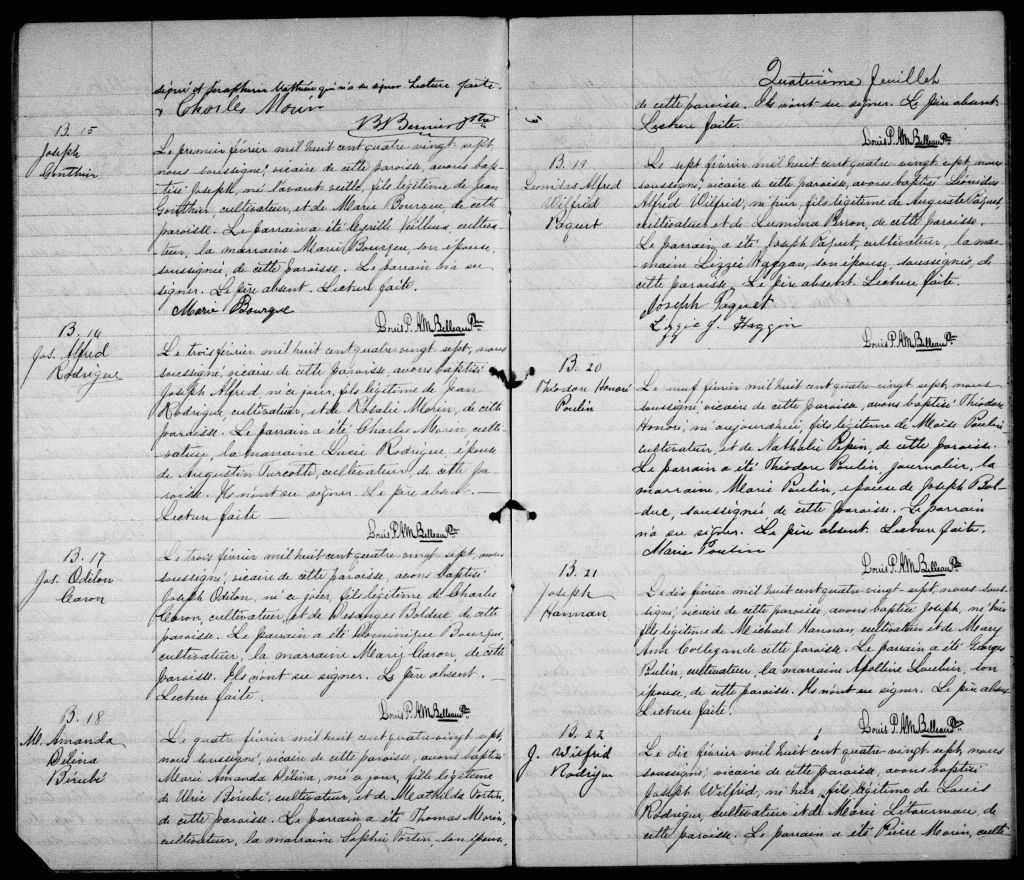 signé et Séraphin Mathieu qui n'a su signer Lecture faite.
Charles Morin
B. Bernier Ptre
B. 15
Joseph
Gonthier
Le premier février mil huit cent quatre vingt sept,
nous soussigné, vicaire de cette paroisse, avons bap-
tisé Joseph, né l'avant veille, fils légitime de Jean
Gonthier, cultivateur, et de Marie Bourque, de cette
paroisse. Le parrain a été Cyrille Veilleux, cultiva-
teur, la marraine Marie Bourque, son épouse,
soussignée, de cette paroisse. Le parrain n'a su
signer. Le père absent. Lecture faite.
Marie Bourque
Louis P. A M Belleau Ptre
B. 16
Jos. Alfred
Rodrigue
Le trois février mil huit cent quatre vingt sept, nous
soussigné, vicaire de cette paroisse, avons baptisé
Joseph Alfred, né ce jour, fils légitime de Jean
Rodrigue, cultivateur, et de Rosalie Morin, de cette
paroisse. Le parrain a été Charles Morin, culti-
vateur, la marraine Lucie Rodrigue, épouse
de Augustin Turcotte, cultivateur, de cette pa-
roisse. Ils n'ont su signer. Le père absent.
Lecture faite
Louis P. A M Belleau Ptre
B. 17
Jos. Odilon
Caron
Le trois février mil huit cent quatre vingt sept, nous
soussigné, vicaire de cette paroisse, avons baptisé
Joseph Odilon, né ce jour, fils légitime de Charles
Caron, cultivateur, et de Desanges Bolduc, de cette
paroisse. Le parrain a été Dominique Bourque,
cultivateur, la marraine Marie Caron, de cette
paroisse. Ils n'ont su signer. Le père absent.
Lecture faite.
Louis P. A M Belleau Ptre
B. 18
M. Amanda
Délina
Bérubé
Le quatre février mil huit cent quatre-vingt sept,
nous soussigné, vicaire de cette paroisse, avons baptisé
Marie Amanda Délina, née ce jour, fille légitime
de Ulric Bérubé, cultivateur, et de Mathilde Fortin,
de cette paroisse. Le parrain a été Thomas Morin,
cultivateur, la marraine Sophie Fortin, son épouse,
Quatrième feuillet
de cette paroisse. Ils n'ont su signer. Le père absent.
Lecture faite.
Louis P. A M Belleau Ptre
B. 19
Léonidas Alfred
Wilfrid
Paquet
Le sept février mil huit cent quatre vingt sept, nous
soussigné, vicaire de cette paroisse, avons baptisé Léonidas
Alfred Wilfrid, né hier, fils légitime de Auguste Paquet,
cultivateur et de Lumina Perron, de cette paroisse.
Le parrain a été Joseph Paquet, cultivateur, la mar-
raine Lizzie Haggan, son épouse, soussignés, de
cette paroisse. Le père absent. Lecture faite.
Joseph Paquet
Lizzie J. Haggin
Louis P. A M Belleau Ptre
B. 20
Théodore Honoré
Poulin
Le neuf février mil huit cent quatre vingt sept, nous
soussigné, vicaire de cette paroisse, avons baptisé Théodore
Honoré, né aujourd'hui, fils légitime de Moïse Poulin,
cultivateur, et de Nathalie Pépin, de cette paroisse.
Le parrain a été Théodore Poulin, journalier, la
marraine, Marie Poulin, épouse de Joseph Bol-
duc, soussignée de cette paroisse. Le parrain
n'a su signer. Le père absent. Lecture faite.
Marie Poulin
Louis P. A M Belleau Ptre
B. 21
Joseph
Hannan
Le dix février mil huit cent quatre-vingt-sept, nous sous-
signé, vicaire de cette paroisse, avons baptisé Joseph, né hier
fils légitime de Michael Hannan, cultivateur et de Mary
Ann Collegan de cette paroisse. Le parrain a été Georges
Poulin, cultivateur, la marraine Apolline Loubier, son
épouse, de cette paroisse. Ils n'ont su signer. Le père absent
Lecture faite.
Louis P. A M Belleau Ptre
B. 22
J. Wilfrid
Rodrigue
Le dix février mil huit cent quatre-vingt sept, nous
soussigné, vicaire de cette paroisse, avons baptisé
Joseph Wilfrid, né hier, fils légitime de Louis
Rodrigue, cultivateur et de Marie Létourneau, de
cette paroisse. Le parrain a été Pierre Morin, culti-